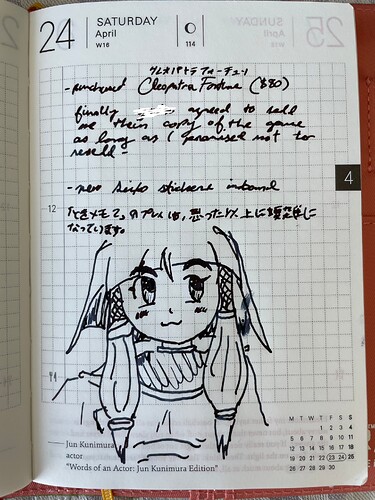 24
SATURDAY
April
W16
114
SUNDAY
25
クレオパトラフォーチュン
- purchased Cleopatra Fortune ($80)
finally agreed to sell
me their copy of the game
as long as I promised not to
resell -
4
- new Aiko stickers inbound
12
「ときメモ2」のプレイは、思った以上に複雑に
なっています。
Jun Kunimura
actor
"Words of an Actor: Jun Kunimura Edition"
M T W T F S S
1 2 3 4
5 6 7 8 9 10 11
12 13 14 15 16 17 18
19 20 21 22 23 24 25
26 27 28 29 30